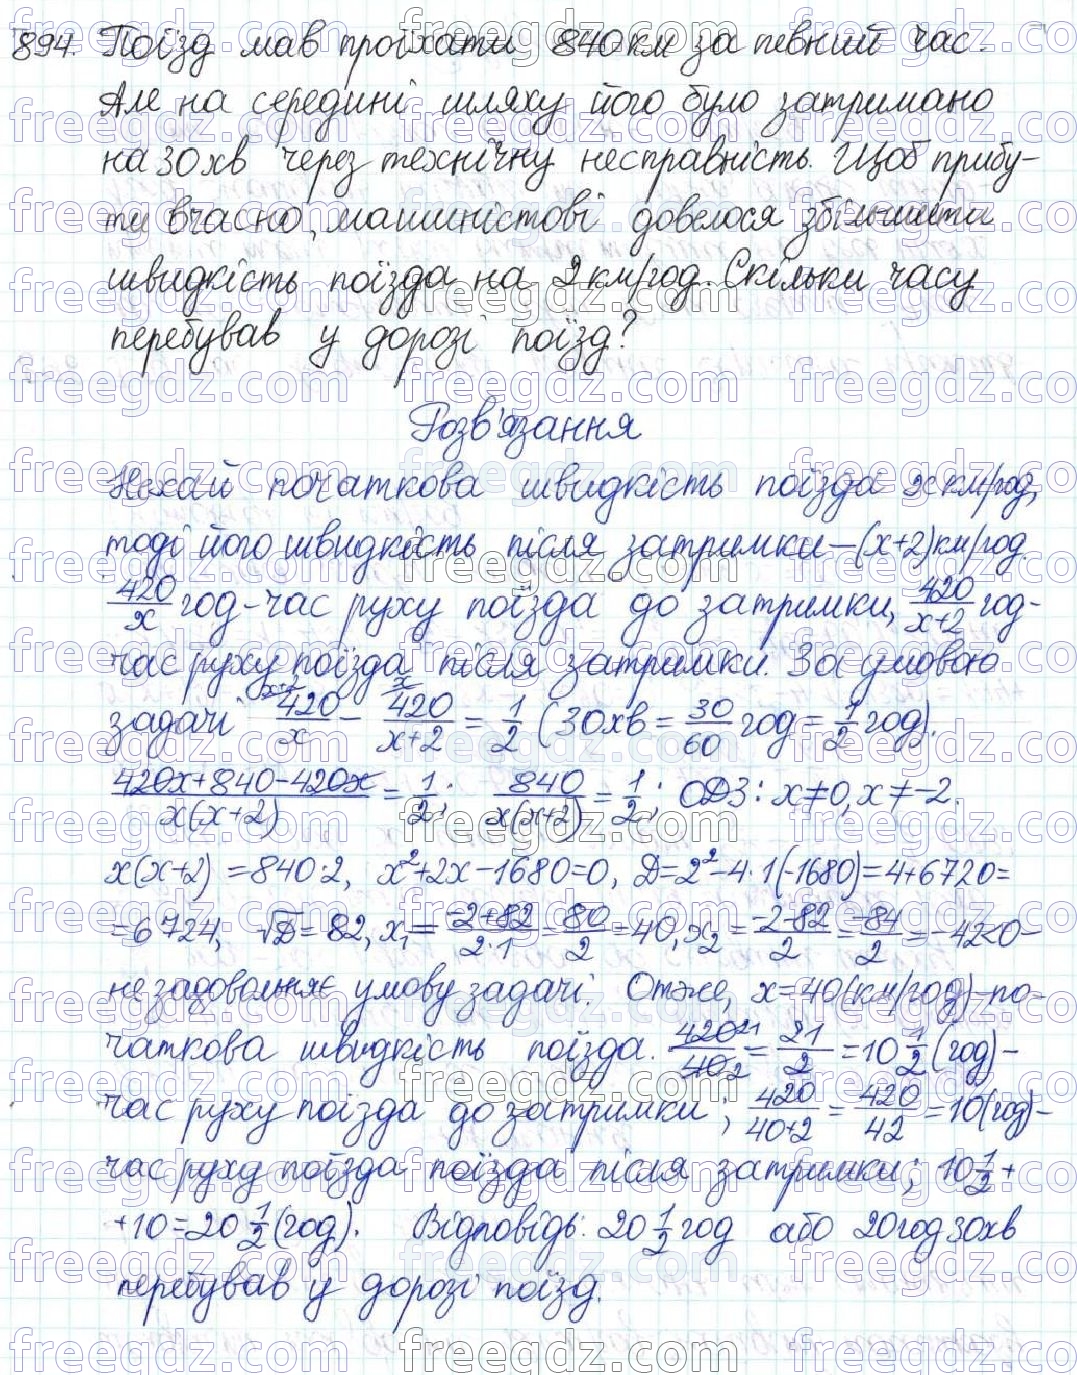 894. Поїзд мав проїхати 840 км за певний час.
Але на середині шляху його було затримано
на 30 хв через технічну несправність. Щоб прибу-
ти вчасно, машиністові довелося збільшити
швидкість поїзда на 2 км/год. Скільки часу
перебував у дорозі поїзд?
Розв'язання
Нехай початкова швидкість поїзда x км/год,
тоді його швидкість після затримки – (x+2) км/год.
420/x год - час руху поїзда до затримки, 420/(x+2) год -
час руху поїзда після затримки. За умовою
задачі 420/x - 420/(x+2) = 1/2 (30 хв = 30/60 год = 1/2 год).
(420x+840-420x)/(x(x+2)) = 1/2; 840/(x(x+2)) = 1/2; ОДЗ: x≠0, x≠-2.
x(x+2) = 840·2, x²+2x-1680=0, D=2²-4·1(-1680)=4+6720=
=6724, √D=82, x₁=(-2+82)/(2·1)=80/2=40, x₂=(-2-82)/2=-84/2=-42<0-
не задовольняє умову задачі. Отже, x=40 (км/год)-по-
чаткова швидкість поїзда. 420/40=21/2=10 1/2 (год)-
час руху поїзда до затримки; 420/(40+2)=420/42=10 (год)-
час руху поїзда поїзда після затримки; 10 1/2+
+10=20 1/2 (год). Відповідь: 20 1/2 год або 20 год 30 хв
перебував у дорозі поїзд.